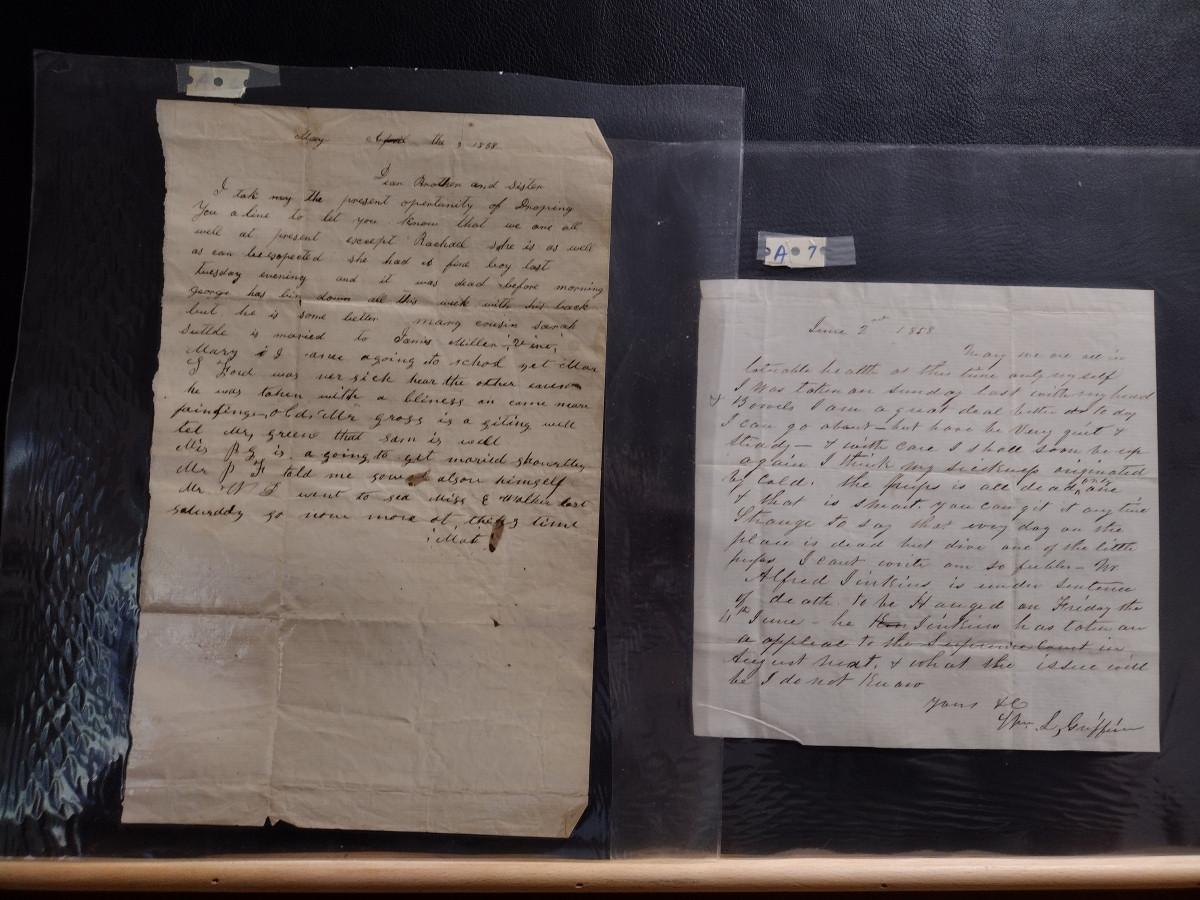 May April the 3 1858
Dear Brother and Sister
I tak my the present opertunity of Droping
You a line to let you know that we are all
well at present except Rachael she is as well
as can be expected she had a fine boy last
tuesday evening and it was dead before morning
George has bin down all this week with his back
but he is some better mary cousin sarah
Suttle is maried to James Miller
Mary & I area agoing to schol yet Mar
I Ford was ver sick hear the other
he was taken with a bliness an came near
painting old Mr gross is a giting well
tel Mr green that sam is well
Mis is a going to get maried shourtley
Mr P F told me so himself
Mr W I went to sea Miss E Walker last
saturday so nom more at this time
A 7
June 2nd 1858
Mary we are all in
tolerable health at this time only myself
I was taken on sunday last with my head
& Bowels I am a great deal better to day
I can go about but have be very quiet &
steady & with care I shall soon be up
again I think my sickness originated
by cold. the pups is all dead only one
& that is smart. you can git it any time
Strange to say that every dog on the
place is dead but dive one of the little
pups I cant write am so feeble Mr.
Alfred Jinkins is under sentence
of death to be Hanged on Friday the
4th June - he Jinkins has taken an
a appleal to the Supreme Court in
August next. & what the issue will
be I do not Know
Yours &C
Wm. L, Griffin